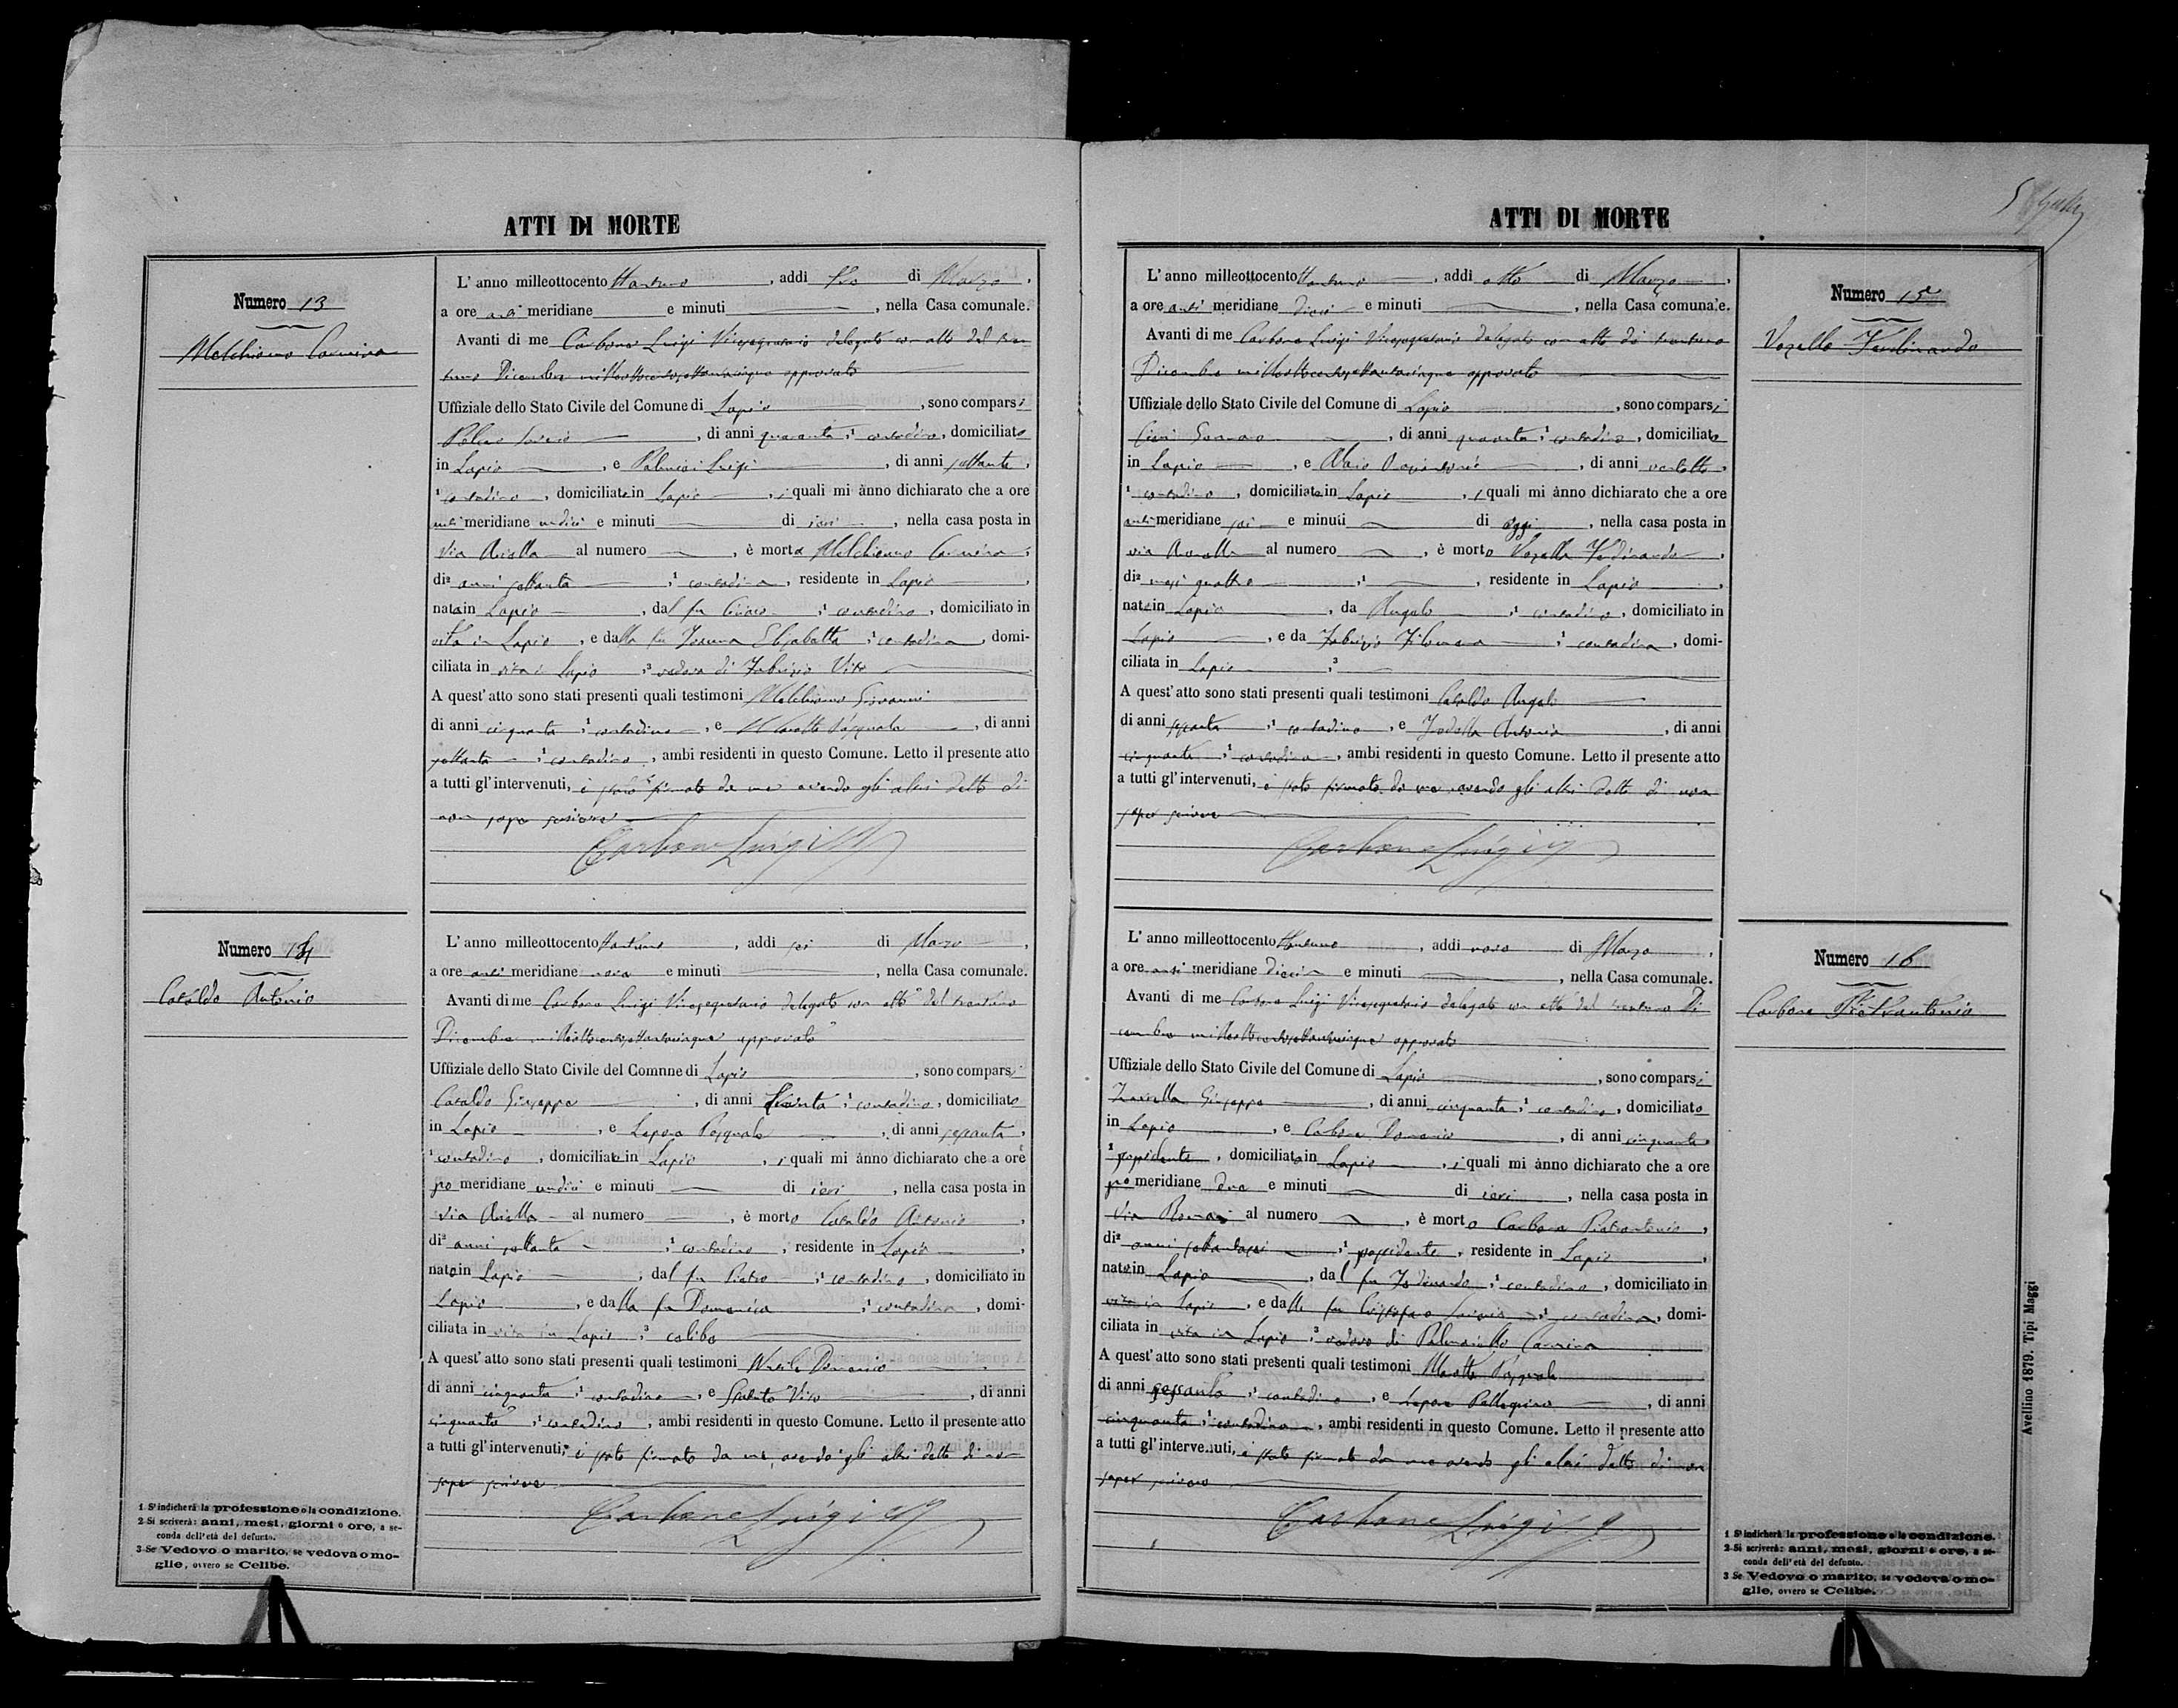 ATTI DI MORTE
Numero 13
Melchionno Carmina
L' anno milleottocento ttantuno, addi tre di Marzo,
a ore anti meridiane e minuti, nella Casa comunale.
Avanti di me Carbone Luigi Vicesegretario delegato con atto del tren
tuno Dicembre milleottocentosettantacinque approvato
Uffiziale dello Stato Civile del Comune di Lapio, sono comparsi
, di anni quaranta, contadino, domiciliato
in Lapio, e Luigi, di anni settanta,
contadino, domiciliato in Lapio, i quali mi ànno dichiarato che a ore
anti meridiane undici e minuti di ieri, nella casa posta in
via Ariella al numero, è morta Melchionno Carmina,
di anni settanta, contadina, residente in Lapio,
nata in Lapio, dal fu Ciriaco, contadino, domiciliato in
vita in Lapio, e dalla fu Elisabetta, contadina, domi-
ciliata in vita in Lapio, vedova di Fabrizio Vito
A quest' atto sono stati presenti quali testimoni Melchionno Giovanni
di anni cinquanta, contadino, e Pasquale, di anni
settanta, contadino, ambi residenti in questo Comune. Letto il presente atto
a tutti gl' intervenuti, è stato firmato da me avendo gli altri detto di
non saper scrivere
Carbone Luigi
Numero 14
Cataldo Antonio
L' anno milleottocento ttantuno, addi sei di Marzo,
a ore anti meridiane nove e minuti, nella Casa comunale.
Avanti di me Carbone Luigi Vicesegretario delegato con atto del trentuno
Dicembre milleottocentosettantacinque approvato
Uffiziale dello Stato Civile del Comnne di Lapio, sono comparsi
Cataldo Giuseppe, di anni trenta, contadino, domiciliato
in Lapio, e Lepore Pasquale, di anni sessanta,
contadino, domiciliato in Lapio, i quali mi ànno dichiarato che a ore
po meridiane undici e minuti di ieri, nella casa posta in
via Ariella al numero, è morto Cataldo Antonio,
di anni settanta, contadino, residente in Lapio,
nato in Lapio, dal fu Pietro, contadino, domiciliato in
Lapio, e dalla fu Domenica, contadina, domi-
ciliata in vita in Lapio, celibe
A quest' atto sono stati presenti quali testimoni Domenico
di anni cinquanta, contadino, e Vito, di anni
cinquanta, contadino, ambi residenti in questo Comune. Letto il presente atto
a tutti gl' intervenuti, è stato firmato da me, avendo gli altri detto di non
saper scrivere
Carbone Luigi
1 S' indicherà la professione o la condizione.
2 Si scriverà: anni, mesi, giorni o ore, a se-
conda dell' età del defunto.
3 Se Vedovo o marito, se vedova o mo-
glie, ovvero se Celibe.
ATTI DI MORTE
5
Numero 15
Vozella Ferdinando
L' anno milleottocento ttantuno, addi otto di Marzo,
a ore anti meridiane dieci e minuti, nella Casa comunale.
Avanti di me Carbone Luigi Vicesegretario delegato con atto di trentuno
Dicembre milleottocentosettantacinque approvato
Uffiziale dello Stato Civile del Comune di Lapio, sono comparsi
, di anni quaranta, contadino, domiciliato
in Lapio, e, di anni ventotto,
contadino, domiciliato in Lapio, i quali mi ànno dichiarato che a ore
anti meridiane sei e minuti di oggi, nella casa posta in
via al numero, è morto Vozella Ferdinando,
di mesi quattro, residente in Lapio,
nato in Lapio, da Angelo, contadino, domiciliato in
Lapio, e da Fabrizio Filomena, contadina, domi-
ciliata in Lapio
A quest' atto sono stati presenti quali testimoni Cataldo Angelo
di anni sessanta, contadino, e Antonio, di anni
cinquanta, contadino, ambi residenti in questo Comune. Letto il presente atto
a tutti gl' intervenuti, è stato firmato da me, avendo gli altri detto di non
saper scrivere
Carbone Luigi
Numero 16
Carbone Pietrantonio
L' anno milleottocento ttantuno, addi nove di Marzo,
a ore anti meridiane dieci e minuti, nella Casa comunale.
Avanti di me Carbone Luigi Vicesegretario delegato con atto del trentuno Di
cembre milleottocentosettantacinque approvato
Uffiziale dello Stato Civile del Comune di Lapio, sono comparsi
Giuseppe, di anni cinquanta, contadino, domiciliato
in Lapio, e Carbone Domenico, di anni cinquanta
possidente, domiciliato in Lapio, i quali mi ànno dichiarato che a ore
po meridiane due e minuti di ieri, nella casa posta in
via Roma al numero, è morto Carbone Pietrantonio,
di anni settantasei, possidente, residente in Lapio,
nato in Lapio, dal fu Ferdinando, contadino, domiciliato in
vita in Lapio, e dalla fu, contadina, domi-
ciliata in vita in Lapio, vedovo di Palmariello Carmina
A quest' atto sono stati presenti quali testimoni Pasquale
di anni sessanta, contadino, e Lepore Pellegrino, di anni
cinquanta, contadino, ambi residenti in questo Comune. Letto il presente atto
a tutti gl' intervenuti, è stato firmato da me avendo gli altri detto di non
saper scrivere
Carbone Luigi
1 S' indicherà la professione o la condizione.
2 Si scriverà: anni, mesi, giorni o ore, a se-
conda dell' età del defunto.
3 Se Vedovo o marito, se vedova o mo-
glie, ovvero se Celibe.
Avellino 1879. Tipi Maggi